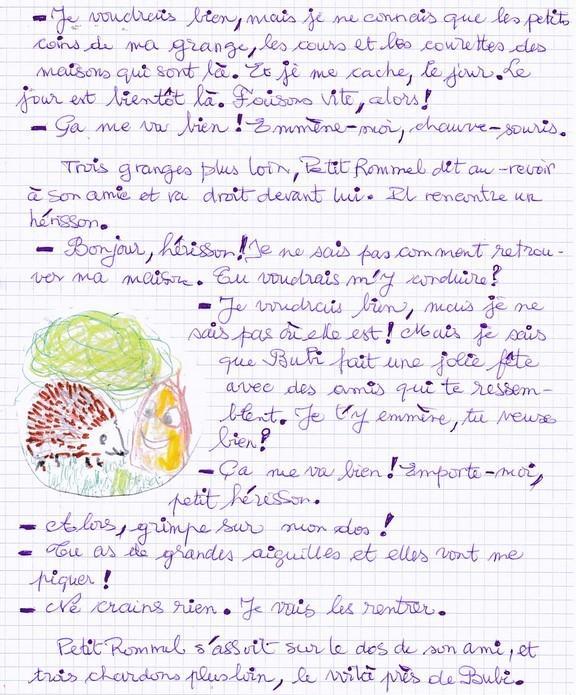 - Je voudrais bien, mais je ne connais que les petits
coins de ma grange, les cours et les courettes des
maisons qui sont là. Et je me cache, le jour. Le
jour est bientôt là. Faisons vite, alors !
- Ça me va bien ! Emmène-moi, chauve-souris.
Trois granges plus loin, Petit Rommel dit au-revoir
à son amie et va droit devant lui. Il rencontre un
hérisson.
- Bonjour, hérisson ! Je ne sais pas comment retrou-
ver ma maison. Tu voudrais m'y conduire ?
- Je voudrais bien, mais je ne
sais pas où elle est ! Mais je sais
que Bubi fait une jolie fête
avec des amis qui te ressem-
blent. Je t'y emmène, tu veux
bien ?
- Ça me va bien ! Emporte-moi,
petit hérisson.
- Alors, grimpe sur mon dos !
- Tu as de grandes aiguilles et elles vont me
piquer !
- Ne crains rien. Je vais les rentrer.
Petit Rommel s'assoit sur le dos de son ami, et
trois chardons plus loin, le voilà près de Bubi.